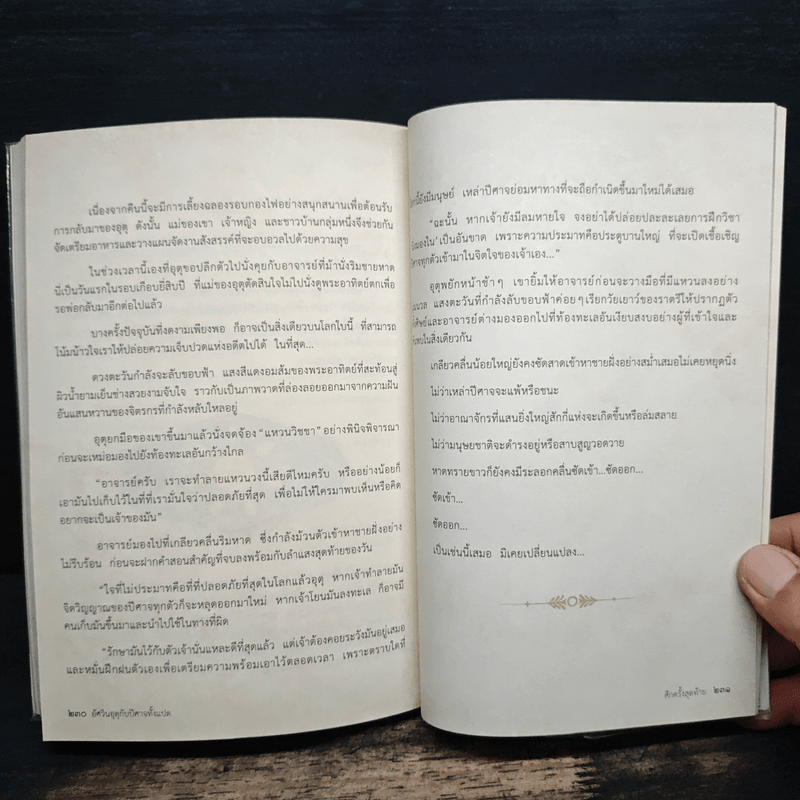 เนื่องจากคืนนี้จะมีการเลี้ยงฉลองรอบกองไฟอย่างสนุกสนานเพื่อต้อนรับ
การกลับมาของอุตุ ดังนั้น แม่ของเขา เจ้าหญิง และชาวบ้านกลุ่มหนึ่งจึงช่วยกัน
จัดเตรียมอาหารและวางแผนจัดงานสังสรรค์ที่จะอบอวลไปด้วยความสุข
ในช่วงเวลานี้เองที่อุตุขอปลีกตัวไปนั่งคุยกับอาจารย์ที่ม้านั่งริมชายหาด
นี่เป็นวันแรกในรอบเกือบยี่สิบปี ที่แม่ของอุตุตัดสินใจไม่ไปนั่งดูพระอาทิตย์ตกเพื่อ
รอพ่อกลับมาอีกต่อไปแล้ว
บางครั้งปัจจุบันที่งดงามเพียงพอ ก็อาจเป็นสิ่งเดียวบนโลกใบนี้ ที่สามารถ
โน้มน้าวใจเราให้ปล่อยความเจ็บปวดแห่งอดีตไปได้ ในที่สุด...
ดวงตะวันกำลังจะลับขอบฟ้า แสงสีแดงอมส้มของพระอาทิตย์ที่สะท้อนสู่
ผิวน้ำยามเย็นช่างสวยงามจับใจ ราวกับเป็นภาพวาดที่ล่องลอยออกมาจากความฝัน
อันแสนหวานของจิตรกรที่กำลังหลับใหลอยู่
อุตุยกมือของเขาขึ้นมาแล้วนั่งจดจ้อง “แหวนวิชชา” อย่างพินิจพิจารณา
ก่อนจะเหม่อมองไปยังท้องทะเลอันกว้างไกล
“อาจารย์ครับ เราจะทำลายแหวนวงนี้เสียดีไหมครับ หรืออย่างน้อยก็
เอามันไปเก็บไว้ในที่ที่เรามั่นใจว่าปลอดภัยที่สุด เพื่อไม่ให้ใครมาพบเห็นหรือคิด
อยากจะเป็นเจ้าของมัน”
อาจารย์มองไปที่เกลียวคลื่นริมหาด ซึ่งกำลังม้วนตัวเข้าหาชายฝั่งอย่าง
ไม่รีบร้อน ก่อนจะฝากคำสอนสำคัญที่จบลงพร้อมกับลำแสงสุดท้ายของวัน
“ใจที่ไม่ประมาทคือที่ที่ปลอดภัยที่สุดในโลกแล้วอุตุ หากเจ้าทำลายมัน
จิตวิญญาณของปีศาจทุกตัวก็จะหลุดออกมาใหม่ หากเจ้าโยนมันลงทะเล ก็อาจมี
คนเก็บมันขึ้นมาและนำไปใช้ในทางที่ผิด
“รักษามันไว้กับตัวเจ้านั่นแหละดีที่สุดแล้ว แต่เจ้าต้องคอยระวังมันอยู่เสมอ
และหมั่นฝึกฝนตัวเองเพื่อเตรียมความพร้อมเอาไว้ตลอดเวลา เพราะตราบใดที่
๒๓๐ อัศวินอุตุกับปีศาจทั้งแปด
นี้ยังมีมนุษย์ เหล่าปีศาจย่อมหาทางที่จะถือกำเนิดขึ้นมาใหม่ได้เสมอ
“ฉะนั้น หากเจ้ายังมีลมหายใจ จงอย่าได้ปล่อยปละละเลยการฝึกวิชา
เป็นอันขาด เพราะความประมาทคือประตูบานใหญ่ ที่จะเปิดเชื้อเชิญ
ปีศาจทุกตัวเข้ามาในจิตใจของเจ้าเอง...”
อุตุพยักหน้าช้าๆ เขายิ้มให้อาจารย์ก่อนจะวางมือที่มีแหวนลงอย่าง
แสงตะวันที่กำลังลับขอบฟ้าค่อยๆ เรียกวัยเยาว์ของราตรีให้ปรากฏตัว
และอาจารย์ต่างมองออกไปที่ท้องทะเลอันเงียบสงบอย่างผู้ที่เข้าใจและ
ในสิ่งเดียวกัน
เกลียวคลื่นน้อยใหญ่ยังคงซัดสาดเข้าหาชายฝั่งอย่างสม่ำเสมอไม่เคยหยุดนิ่ง
ไม่ว่าเหล่าปีศาจจะแพ้หรือชนะ
ไม่ว่าอาณาจักรที่แสนยิ่งใหญ่สักกี่แห่งจะเกิดขึ้นหรือล่มสลาย
ไม่ว่ามนุษยชาติจะดำรงอยู่หรือสาบสูญวอดวาย
หาดทรายขาวก็ยังคงมีระลอกคลื่นซัดเข้า...ซัดออก...
ซัดเข้า...
ซัดออก...
เป็นเช่นนี้เสมอ มิเคยเปลี่ยนแปลง...
ศึกครั้งสุดท้าย ๒๓๑